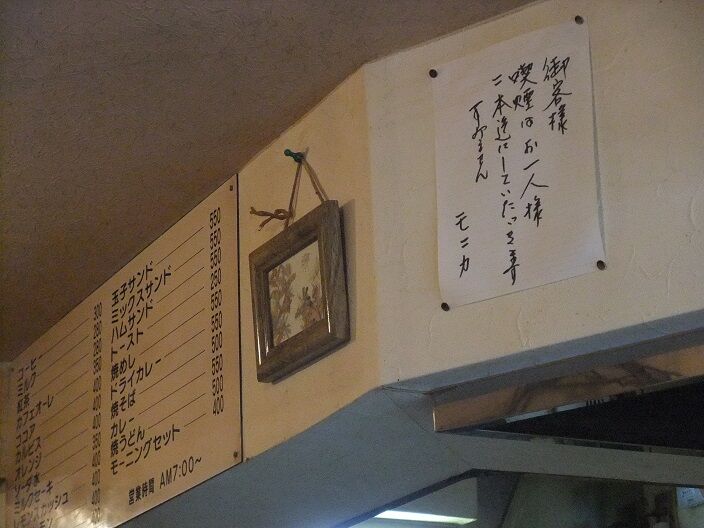 御客様
喫煙はお一人様
二本迄にしていただきます
すみません
モニカ
コーヒー 300
ミルク 280
紅茶 280
カフェオーレ 350
ココア 400
カルピス 400
オレンジ 400
ソーダ水 350
ミルクセーキ 400
レモンスカッシュ 400
玉子サンド 550
ミックスサンド 550
ハムサンド 550
トースト 250
焼めし 550
ドライカレー
焼そば 500
カレー 550
焼うどん 500
モーニングセット 400
営業時間 AM7:00～